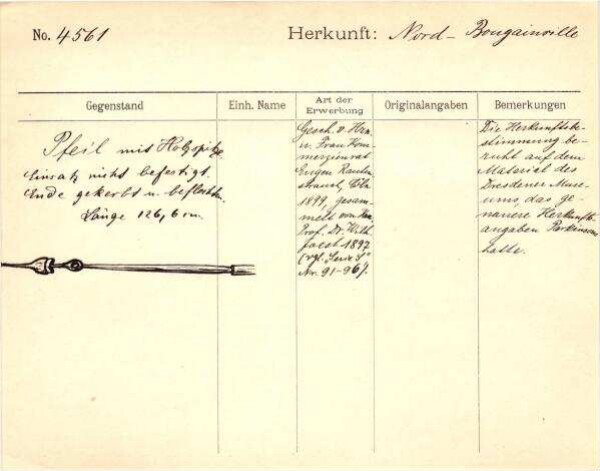 No. 4561
Herkunft: Nord- Bougainville
Gegenstand
Einh. Name
Art der Erwerbung
Originalangaben
Bemerkungen
Pfeil mit Holzspitze
Einsatz nicht befestigt.
Ende gekerbt u. beflochten.
Länge 126,6 cm.
Gesch. v. Hrn.
u. Frau Kom-
merzienrat
Eugen Rauten-
strauch, Cöln
1899, gesam-
melt von Hrn.
Prof. Dr. Wilh.
Joest 1897
(vgl. Serie S"
Nr. 91-96).
Die Herkunftsbe-
stimmung be-
ruht auf dem
Material des
Dresdener Muse-
ums, das ge-
nauere Herkunfts-
angaben Parkinsons
hatte.